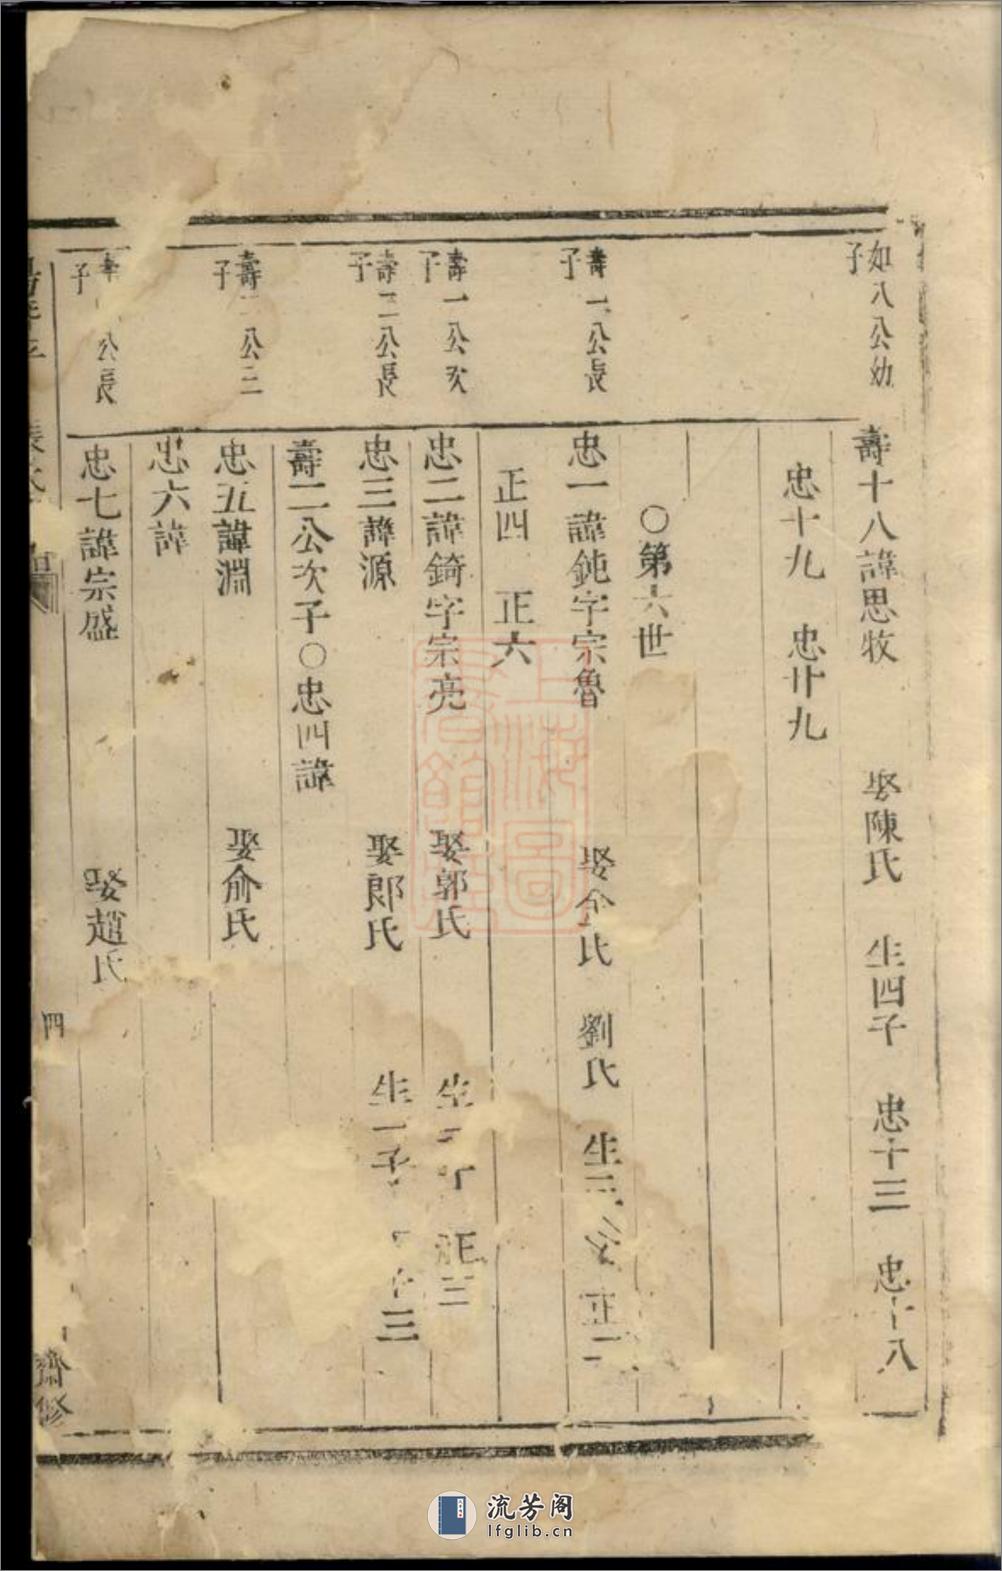 如八公幼子
壽十八諱思牧 娶陳氏 生四子 忠十三 忠十八
忠十九 忠廿九
○第六世
壽一公長子
忠一諱鈍字宗魯 娶余氏 劉氏 生 正二
正四 正六
壽一公次子
忠二諱錡字宗亮 娶郭氏 生 正三
壽二公長子
忠三諱源 娶郎氏 生一子 十三
壽二公次子○忠四諱
壽二公三子
忠五諱淵 娶俞氏
忠六諱
公長子
忠七諱宗盛 娶趙氏
四
齋修
上海圖書館藏
流芳阁
lfglib.cn